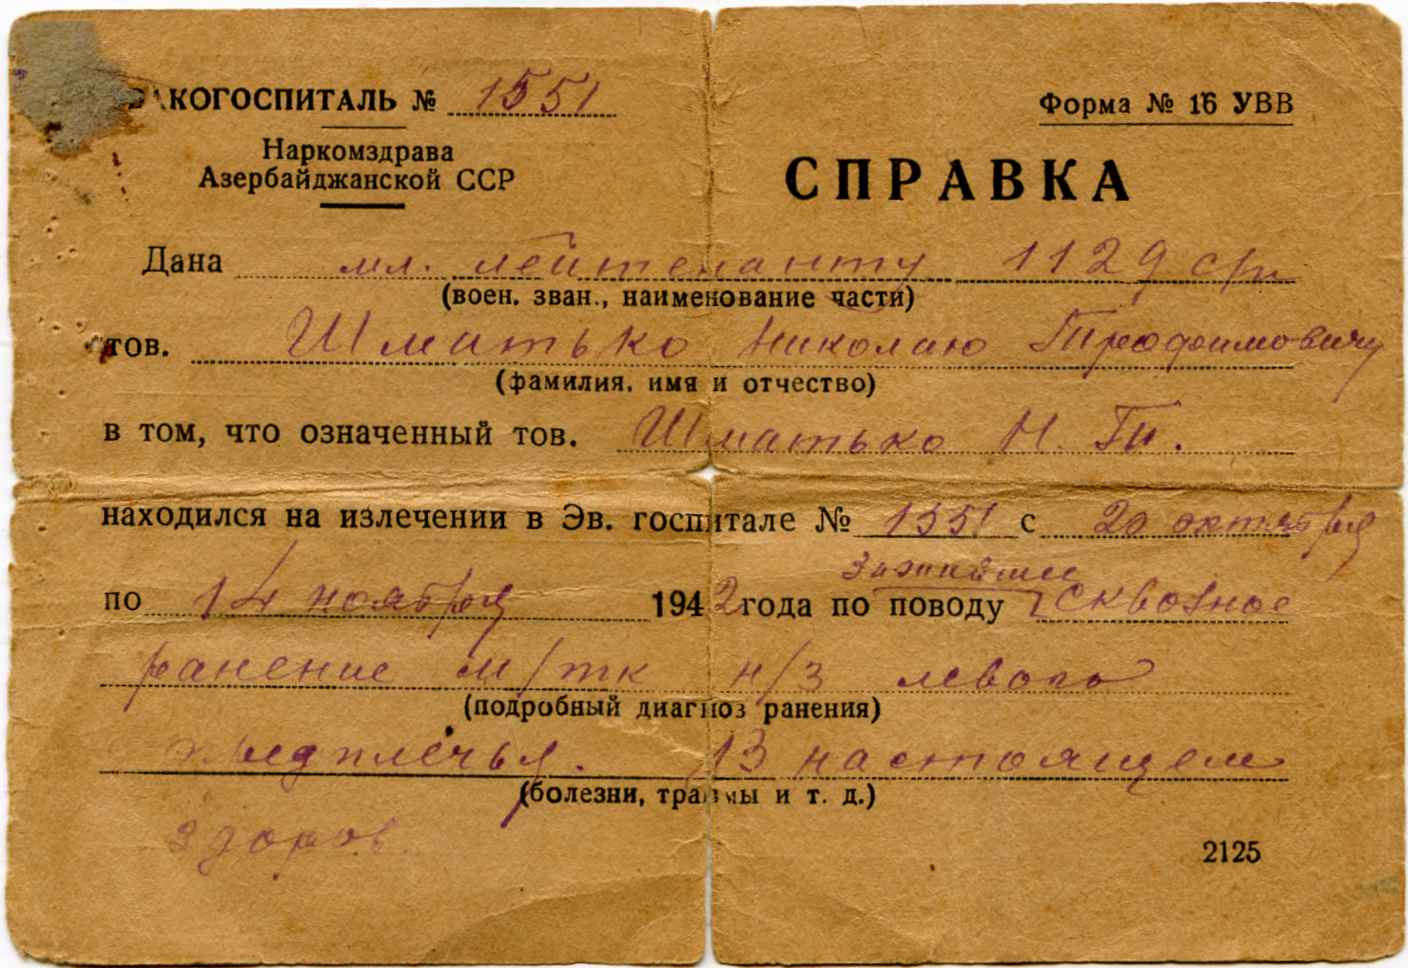 ВАКОГОСПИТАЛЬ № 1551
Форма № 16 УВВ
Наркомздрава
Азербайджанской ССР
СПРАВКА
Дана мл. лейтенанту 1129 сп
(воен. зван., наименование части)
тов. Шматько Николаю Трофимовичу
(фамилия, имя и отчество)
в том, что означенный тов. Шматько Н. Т.
находился на излечении в Эв. госпитале № 1551 с 20 октября
по 14 ноября 1942 года по поводу зажившее сквозное
ранение м/тк н/3 левого
(подробный диагноз ранения)
предплечья. В настоящем
(болезни, травмы и т. д.)
здоров.
2125